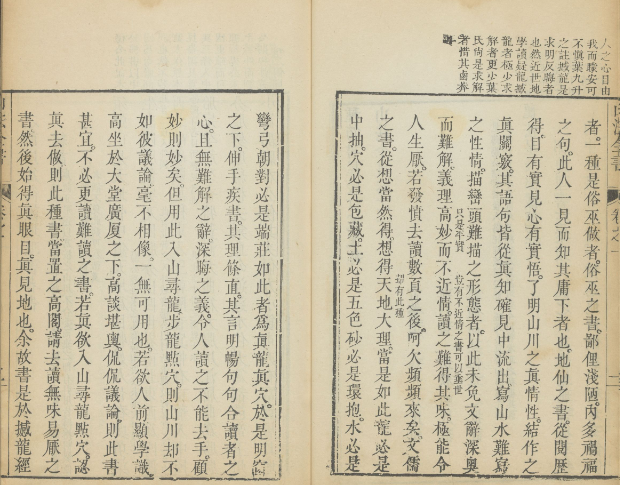 人之心目由
我而矇安可
不慎葉九升
之註城龍是
求明反晦者
也然近世地
學讀疑龍撼
龍者極少求
解者更少葉
氏尚是求解
者惜其鹵莽
者一種是俗巫做者俗巫之書鄙俚淺陋丙多禍福
之句此人一見而知其庸下者也地仙之書從閱歷
得目有實見心有實悟了明山川之眞情性結作之
眞關竅其語句皆從眞知確見中流出寫山水難寫
之性情描巒頭難描之形態者以此未免文辭深奧
而難解義理高妙而不近情讀之難得其味極能令
只是平實
豈有不近情之書可以垂世
人生厭若發憤去讀數頁之後呵欠頻頻來矣文儒
之書從想當然得想得天地大理當是如此龍必是
却有此種
中抽穴必是包藏土必是五色砂必是環抱水必是
彎弓朝對必是端莊如此者為眞龍眞穴於是明窓
之下伸手疾書其理條直其言明暢句句合讀者之
心且無難解之辭深晦之義令人讀之不能去手顧
則妙妙矣但用此入山尋龍步龍點穴則山川却不
如彼議論毫不相像一無可用也若欲人前顯學識
高坐於大堂廣厦之下高談堪輿侃侃議論則此書
甚宜不必更讀難讀之書若眞欲入山尋龍點穴認
眞去做則此種書當置之高閣請去讀無味易厭之
書然後始得眞眼目眞見地也余故書是於撼龍經